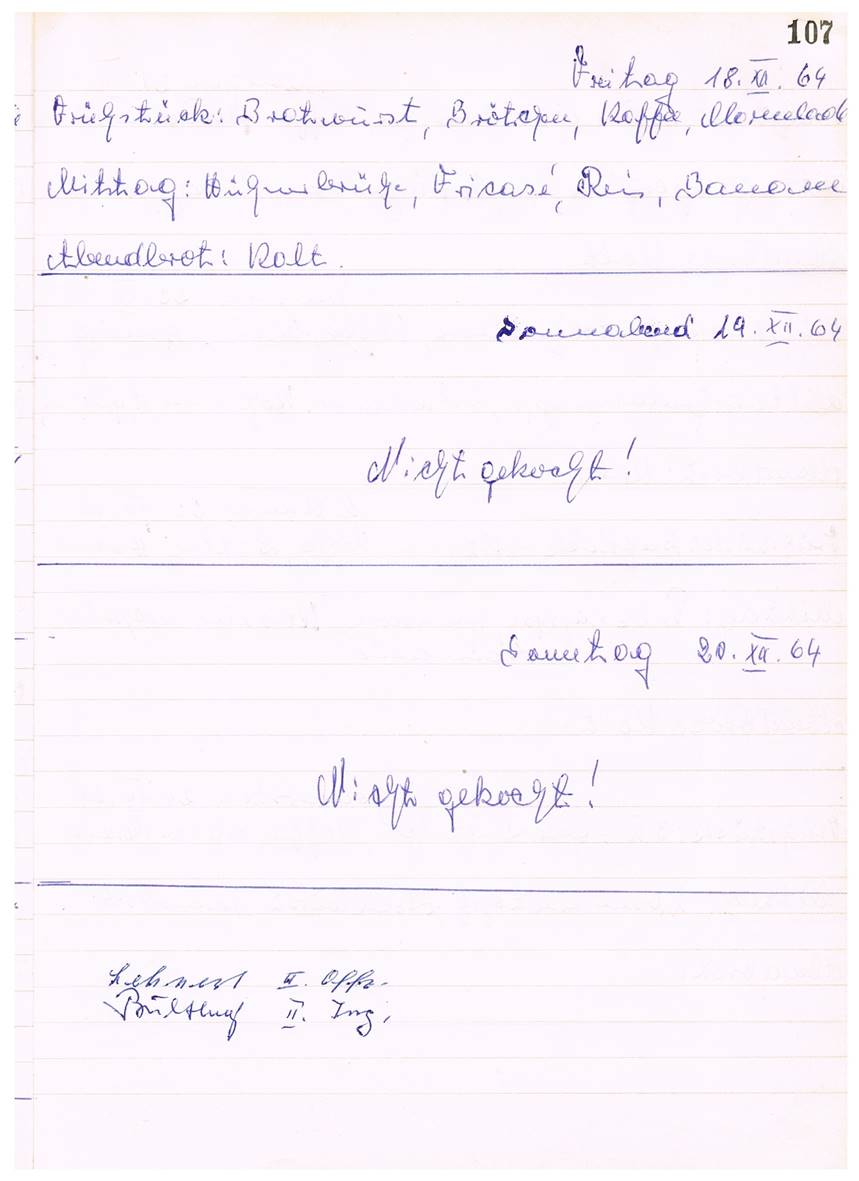 107
Freitag 18.XII.64
Frühstück: Bratwurst, Brötchen, Kaffee, Marmelade
Mittag: Hühnerbrühe, Fricasé, Reis, Banane
Abendbrot: Kalt.
Sonnabend 19.XII.64
Nicht gekocht!
Sonntag 20.XII.64
Nicht gekocht!
Lehnert II. Offz.
II. Ing.